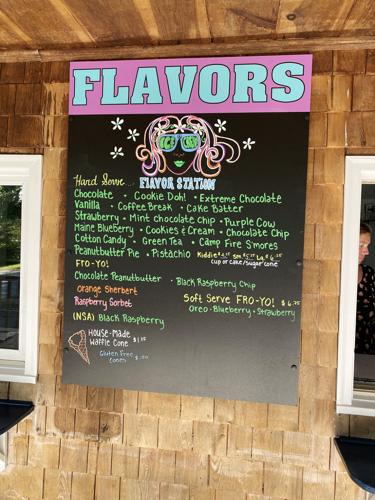 FLAVORS
ICE CREAM
FLAVOR STATION
Hard Serve...
Chocolate • Cookie Doh! • Extreme Chocolate
Vanilla • Coffee Break • Cake Batter
Strawberry • Mint chocolate Chip • Purple Cow
Maine Blueberry • Cookies & Cream • Chocolate Chip
Cotton Candy • Green Tea • Camp Fire S'mores
Peanutbutter Pie • Pistachio Kiddie Sm Lg
cup or cake/sugar cone
FRO-YO!
Chocolate Peanutbutter • Black Raspberry Chip
Orange Sherbert
Raspberry Sorbet
Soft Serve FRO-YO! $6.75
Oreo • Blueberry • Strawberry
(NSA) Black Raspberry
House-Made
Waffle Cone
Gluten Free
Cones